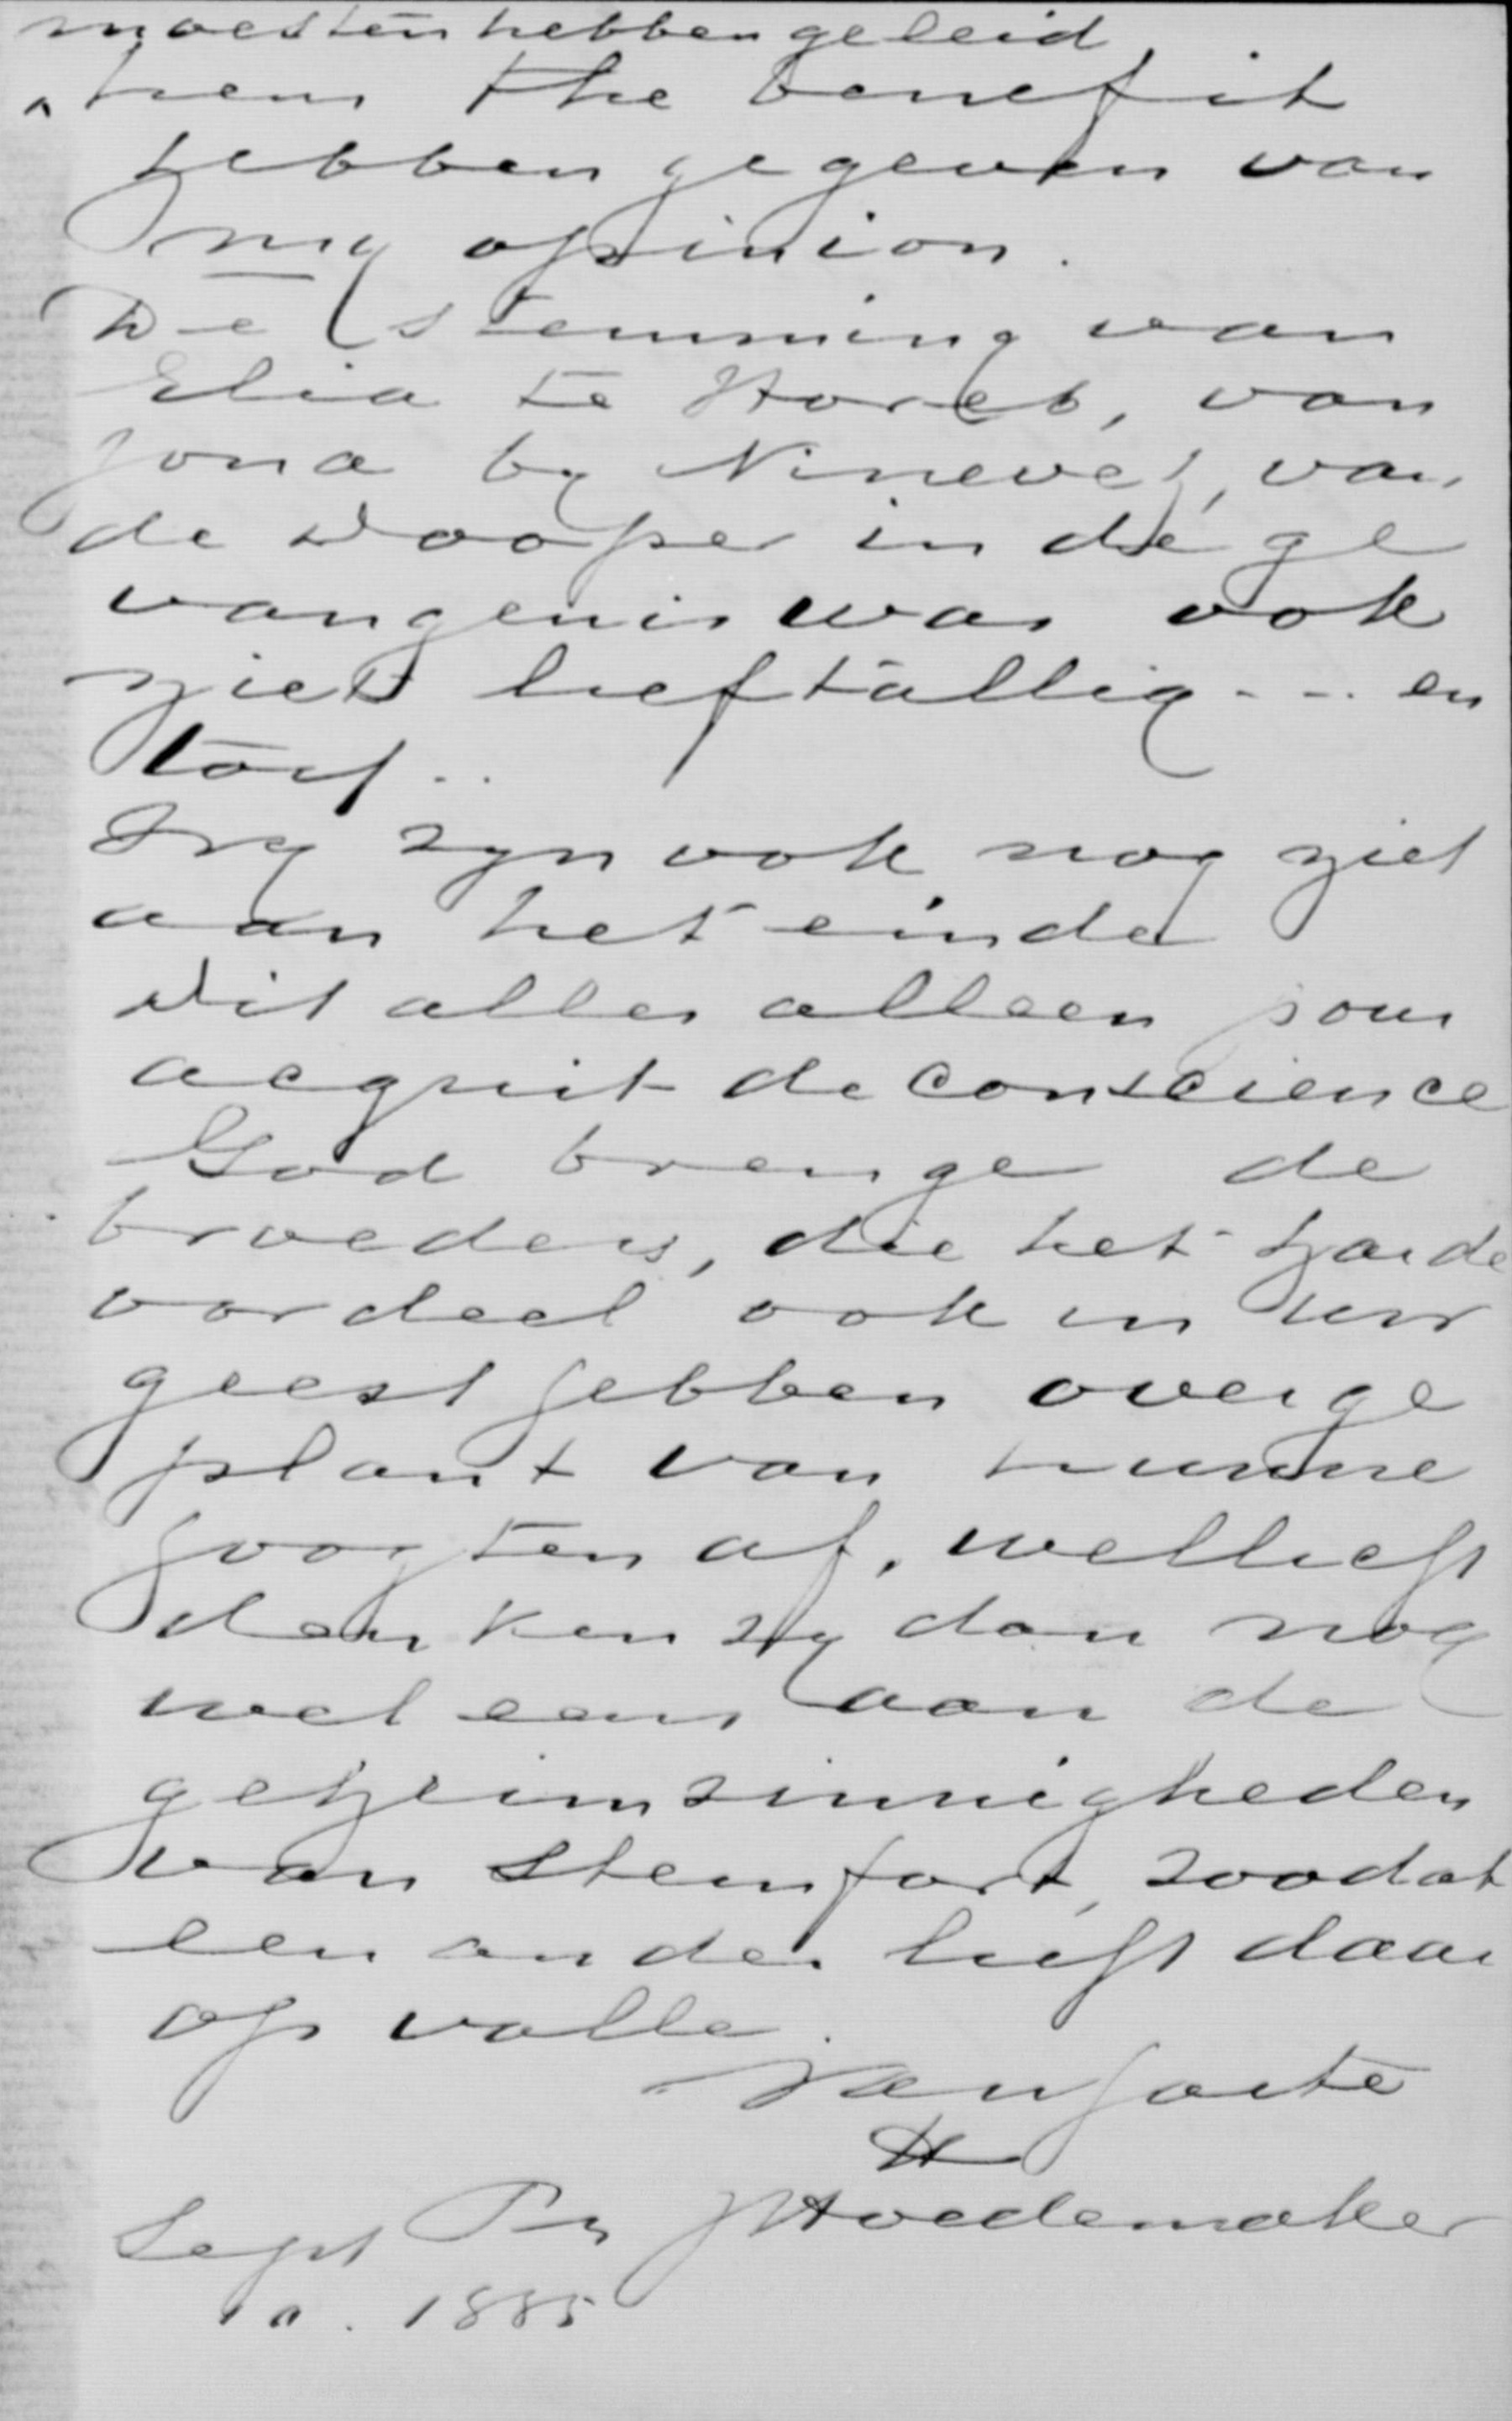 moesten hebben geleid,
hem the benefit
hebben gegeven van
my opinion.
De stemming van
Elia te Horeb, van
Jona by Nineveh, van
de Dooper in de ge
vangenis was ook
niet lieftallig - - . en
toch . .
Wy zyn ook nog niet
aan het einde
Dit alles alleen pour
acquit de conscience
God brenge de
broeders, die het harde
oordeel ook in uw
geest hebben overge
plant van hunne
hoogten af, wellicht
denken zy dan nog
wel eens aan de
geheimzinnigheden
van Steinfort, zoodat
een ander licht daar
op valle.
van harte
H
PhJ Hoedemaker
Sept
10. 1885